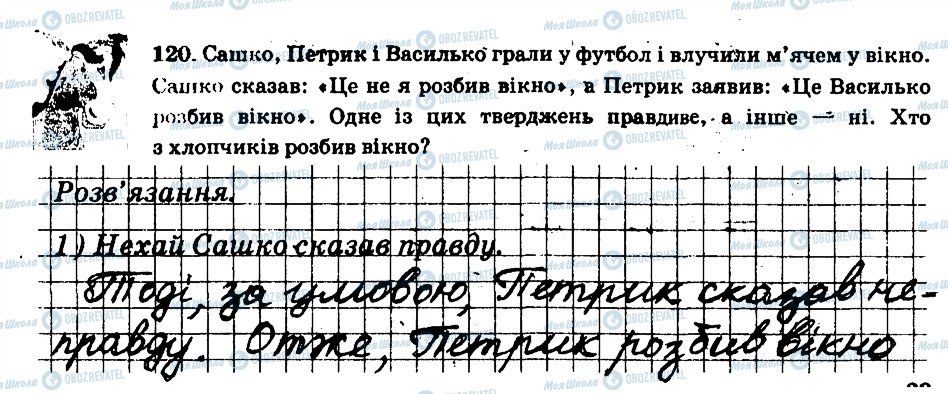 120. Сашко, Петрик і Василько грали у футбол і влучили м’ячем у вікно.
Сашко сказав: «Це не я розбив вікно», а Петрик заявив: «Це Василько
розбив вікно». Одне із цих тверджень правдиве, а інше — ні. Хто
з хлопчиків розбив вікно?
Розв’язання.
1) Нехай Сашко сказав правду.
Тоді, за умовою, Петрик сказав не-
правду. Отже, Петрик розбив вікно